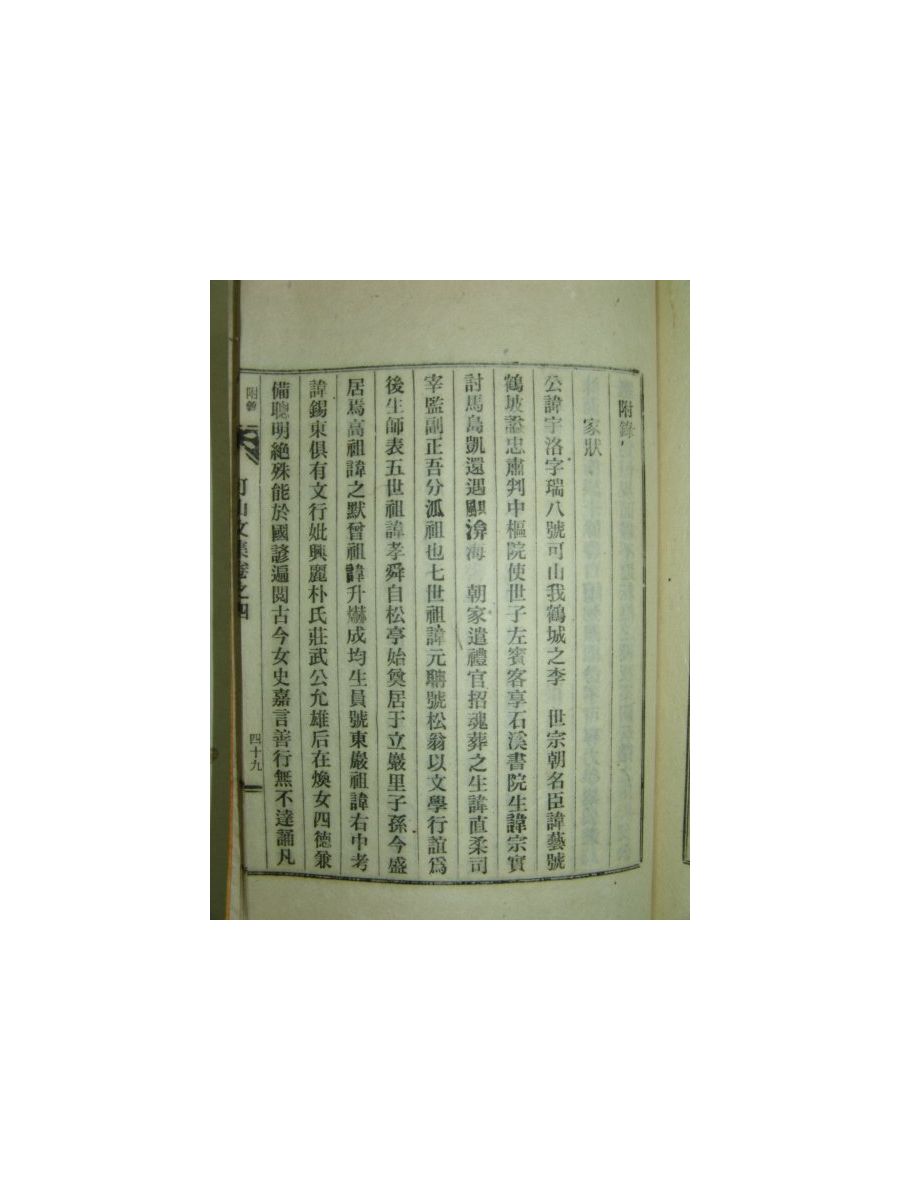 附錄
家狀
公諱宇洛字瑞八號可山我鶴城之李 世宗朝名臣諱藝號
鶴坡諡忠肅判中樞院使世子左賓客享石溪書院生諱宗實
討馬島凱還遇颶渰海 朝家遣禮官招魂葬之生諱直柔司
宰監副正吾分派祖也七世祖諱元聃號松翁以文學行誼爲
後生師表五世祖諱孝舜自松亭始奠居于立巖里子孫今盛
居焉高祖諱之默曾祖諱升爀成均生員號東巖祖諱右中考
諱錫東俱有文行妣興麗朴氏莊武公允雄后在煥女四德兼
備聰明絶殊能於國諺遍閱古今女史嘉言善行無不達誦凡
可山文集卷之四
四十九